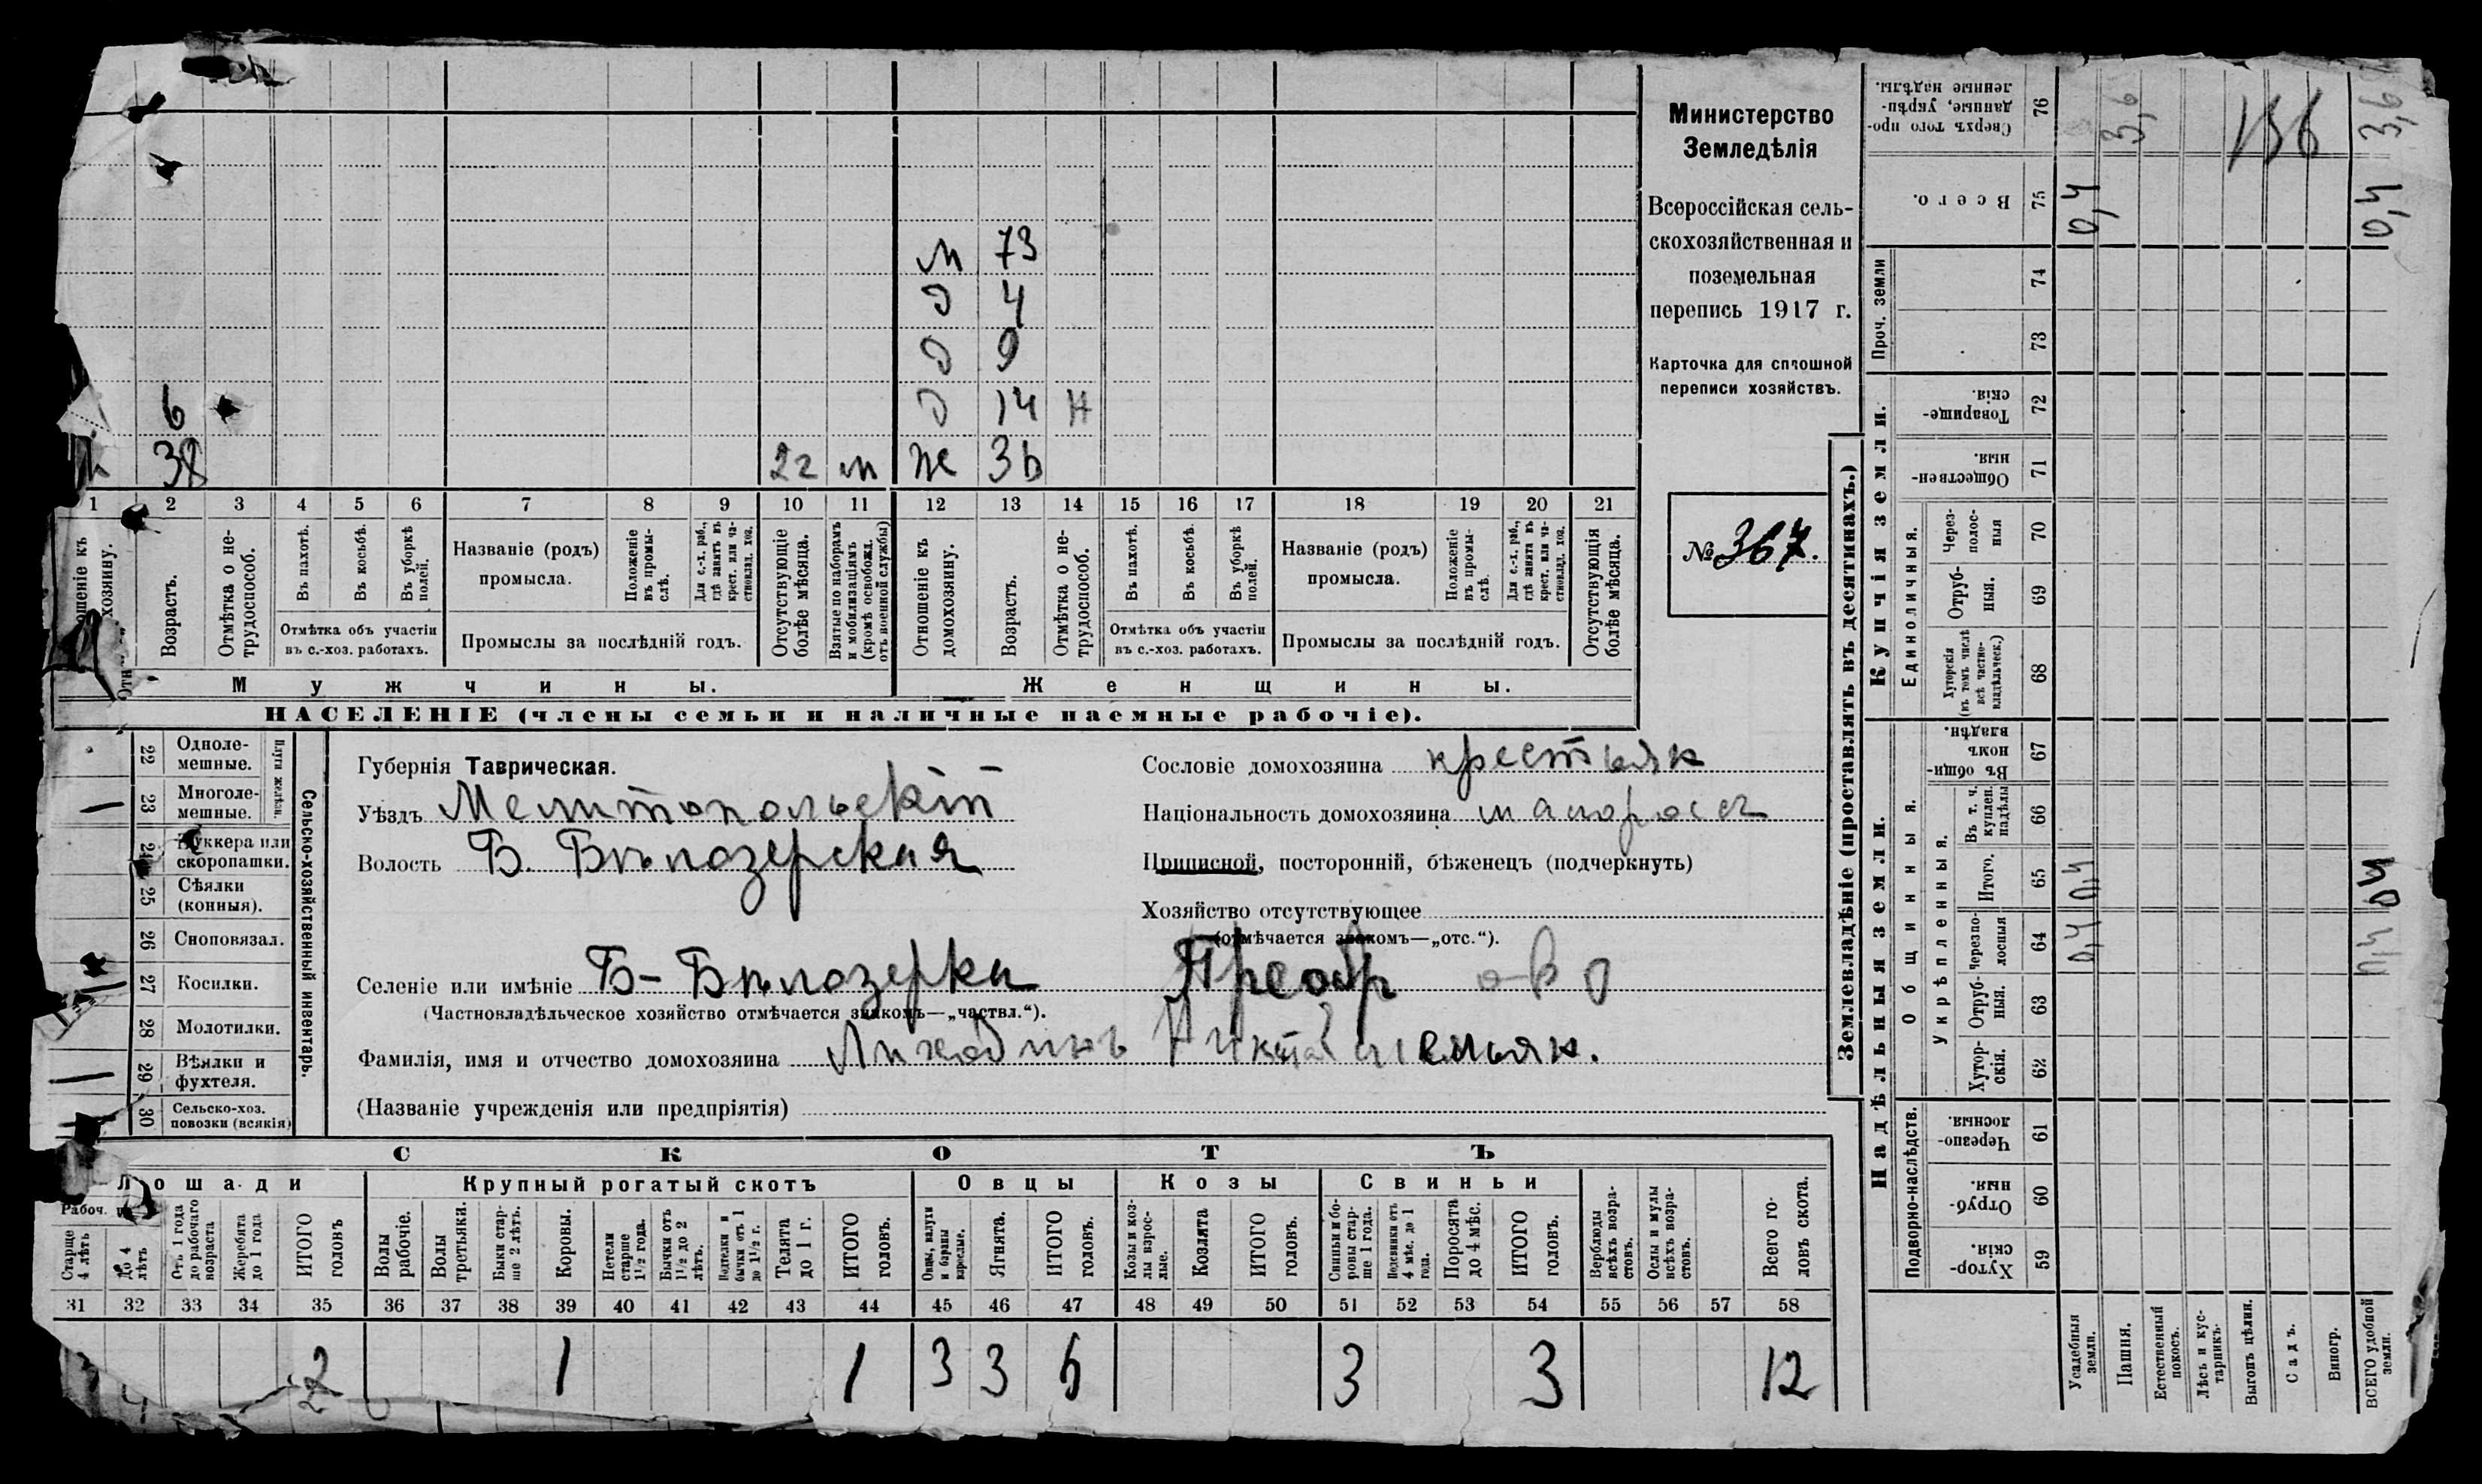 м 73
д 4
д 9
6 д 14 н
38 2г м ж 36
1 2 3 4 5 6 7 8 9 10 11 12 13 14 15 16 17 18 19 20 21
Отношеніе къ домохозяину.
Возрастъ.
Отмѣтка о нетрудоспособ.
Въ пахотѣ.
Въ косьбѣ.
Въ уборкѣ полей.
Отмѣтка объ участіи
въ с.-хоз. работахъ.
Названіе (родъ)
промысла.
Положеніе въ промыслѣ.
Для с.-х. раб., гдѣ занятъ въ крест. или частновлад. хоз.
Промыслы за послѣдній годъ.
Отсутствующіе болѣе мѣсяца.
Взятые по наборамъ и мобилизаціямъ (кромѣ освобожд. отъ военной службы)
Отношеніе къ домохозяину.
Возрастъ.
Отмѣтка о нетрудоспособ.
Въ пахотѣ.
Въ косьбѣ.
Въ уборкѣ полей.
Отмѣтка объ участіи
въ с.-хоз. работахъ.
Названіе (родъ)
промысла.
Положеніе въ промыслѣ.
Для с.-х. раб., гдѣ занята въ крест. или частновлад. хоз.
Промыслы за послѣдній годъ.
Отсутствующія болѣе мѣсяца.
Мужчины. Женщины.
НАСЕЛЕНІЕ (члены семьи и наличные наемные рабочіе).
Министерство
Земледѣлія
Всероссійская сель-
скохозяйственная и
поземельная
перепись 1917 г.
Карточка для сплошной
переписи хозяйствъ.
№ 367.
Сельско-хозяйственный инвентарь.
Плуги желѣзн.
22 Одноле-
мешные.
23 Многоле-
мешные.
24 Буккера или
скоропашки.
25 Сѣялки
(конныя).
26 Сноповязал.
27 Косилки.
28 Молотилки.
29 Вѣялки и
фухтеля.
30 Сельско-хоз.
повозки (всякія)
Губернія Таврическая.
Уѣздъ Мелитопольскій
Волость Б. Бѣлозерская
Селеніе или имѣніе Б-Бѣлозерка Преобр о-во
(Частновладѣльческое хозяйство отмѣчается знакомъ—„частвл.“).
Фамилія, имя и отчество домохозяина
(Названіе учрежденія или предпріятія)
Сословіе домохозяина крестьян
Національность домохозяина малоросс
Приписной, посторонній, бѣженецъ (подчеркнуть)
Хозяйство отсутствующее
(отмѣчается знакомъ—„отс.“).
СКОТЪ
Лошади Крупный рогатый скотъ Овцы Козы Свиньи
Рабоч.
Старше 4 лѣтъ
До 4 лѣтъ
Отъ 1 года до рабочаго возраста
Жеребята до 1 года
ИТОГО головъ
Волы рабочіе.
Волы третьяки.
Быки старше 2 лѣтъ.
Коровы.
Нетели старше 1½ года.
Бычки отъ 1½ до 2 лѣтъ.
Подтелки и бычки отъ 1 до 1½ г.
Телята до 1 г.
ИТОГО головъ.
Овцы, валухи и бараны взрослые.
Ягнята.
ИТОГО головъ.
Козы и козлы взрослые.
Козлята
ИТОГО головъ.
Свиньи и боровы старше 1 года.
Подсвинки отъ 4 мѣс. до 1 года.
Поросята до 4 мѣс.
ИТОГО головъ.
Верблюды всѣхъ возрастовъ.
Ослы и мулы всѣхъ возрастовъ.
Всего головъ скота.
31 32 33 34 35 36 37 38 39 40 41 42 43 44 45 46 47 48 49 50 51 52 53 54 55 56 57 58
2 1 1 3 3 6 3 3 12
Землевладѣніе (проставлять въ десятинахъ.)
Надѣльныя земли. Купчія земли. Проч. земли
Подворно-наслѣдств.
Общинныя.
Укрѣпленныя.
Единоличныя.
59 Хуторскія.
60 Отрубныя.
61 Черезполосныя.
62 Хуторскія.
63 Отрубныя.
64 Черезполосныя
65 Итого.
66 Въ т. ч. куплен. надѣлы
67 Въ общинномъ владѣн.
68 Хуторскія (въ томъ числѣ всѣ частновладѣльческ.)
69 Отрубныя.
70 Черезполосныя
71 Общественныя.
72 Товарищескія.
73
74
75 Всего.
76 Сверхъ того проданные, укрѣпленные надѣлы.
Усадебныя земли. 0,4 0,4 0,4
Пашня. 3,6
Естественный покосъ.
Лѣсъ и кустарникъ.
Выгонъ цѣлин.
Садъ.
Виногр.
ВСЕГО удобной земли. 0,4 0,4 0,4 3,6
136